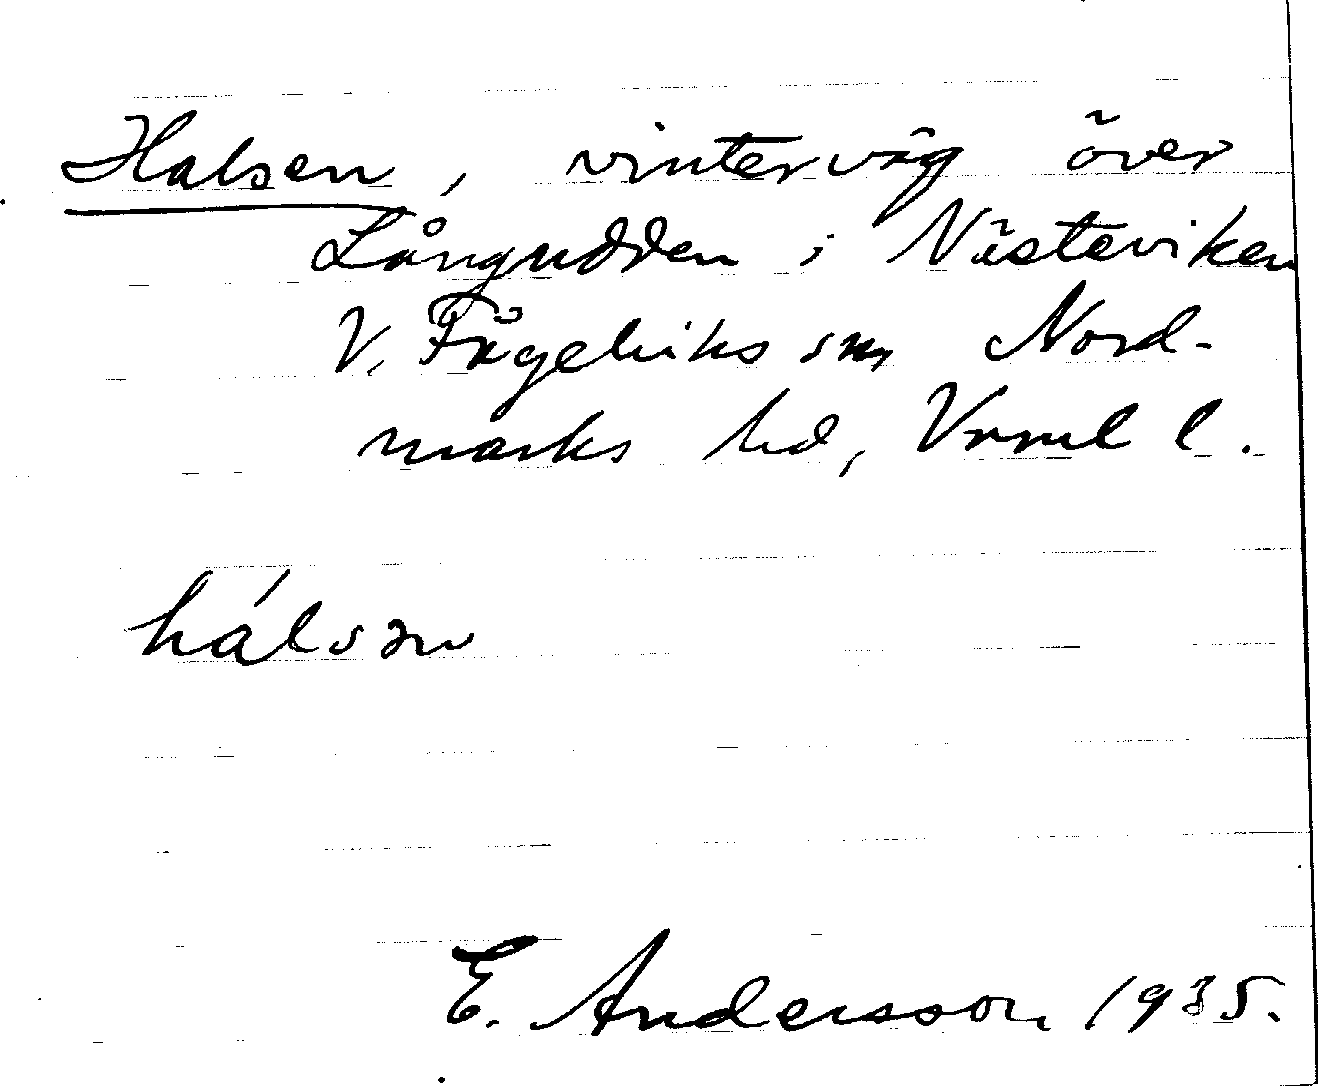 Halsen, vinterväg över
Långudden i Nästeviken
V. Fågelviks sn, Nord-
marks hd, Vrml l.
hálsən
E. Andersson 1935.